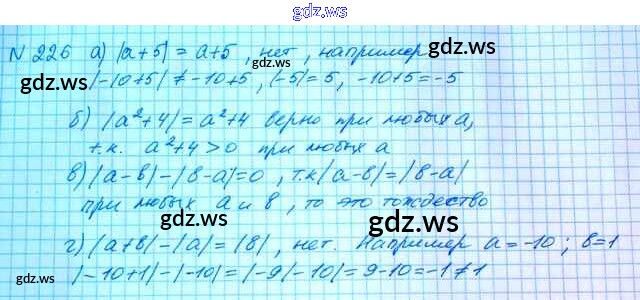 gdz.ws
gdz.ws
N 226 а) |a+5| = a+5, нет, например
gdz.ws gdz.ws
|-10+5| ≠ -10+5, |-5| = 5, -10+5 = -5
б) |a²+4| = a²+4 верно при любых a,
т.к. a²+4>0 при любых a
в) |a-в|-|в-a|=0, т.к |a-в|=|в-a|
при любых a и в, то это тождество
gdz.ws
г) |a+в|-|a|=|в|, нет. Например a=-10; в=1
gdz.ws gdz.ws
|-10+1|-|-10|=|-9|-|-10|=9-10=-1≠1